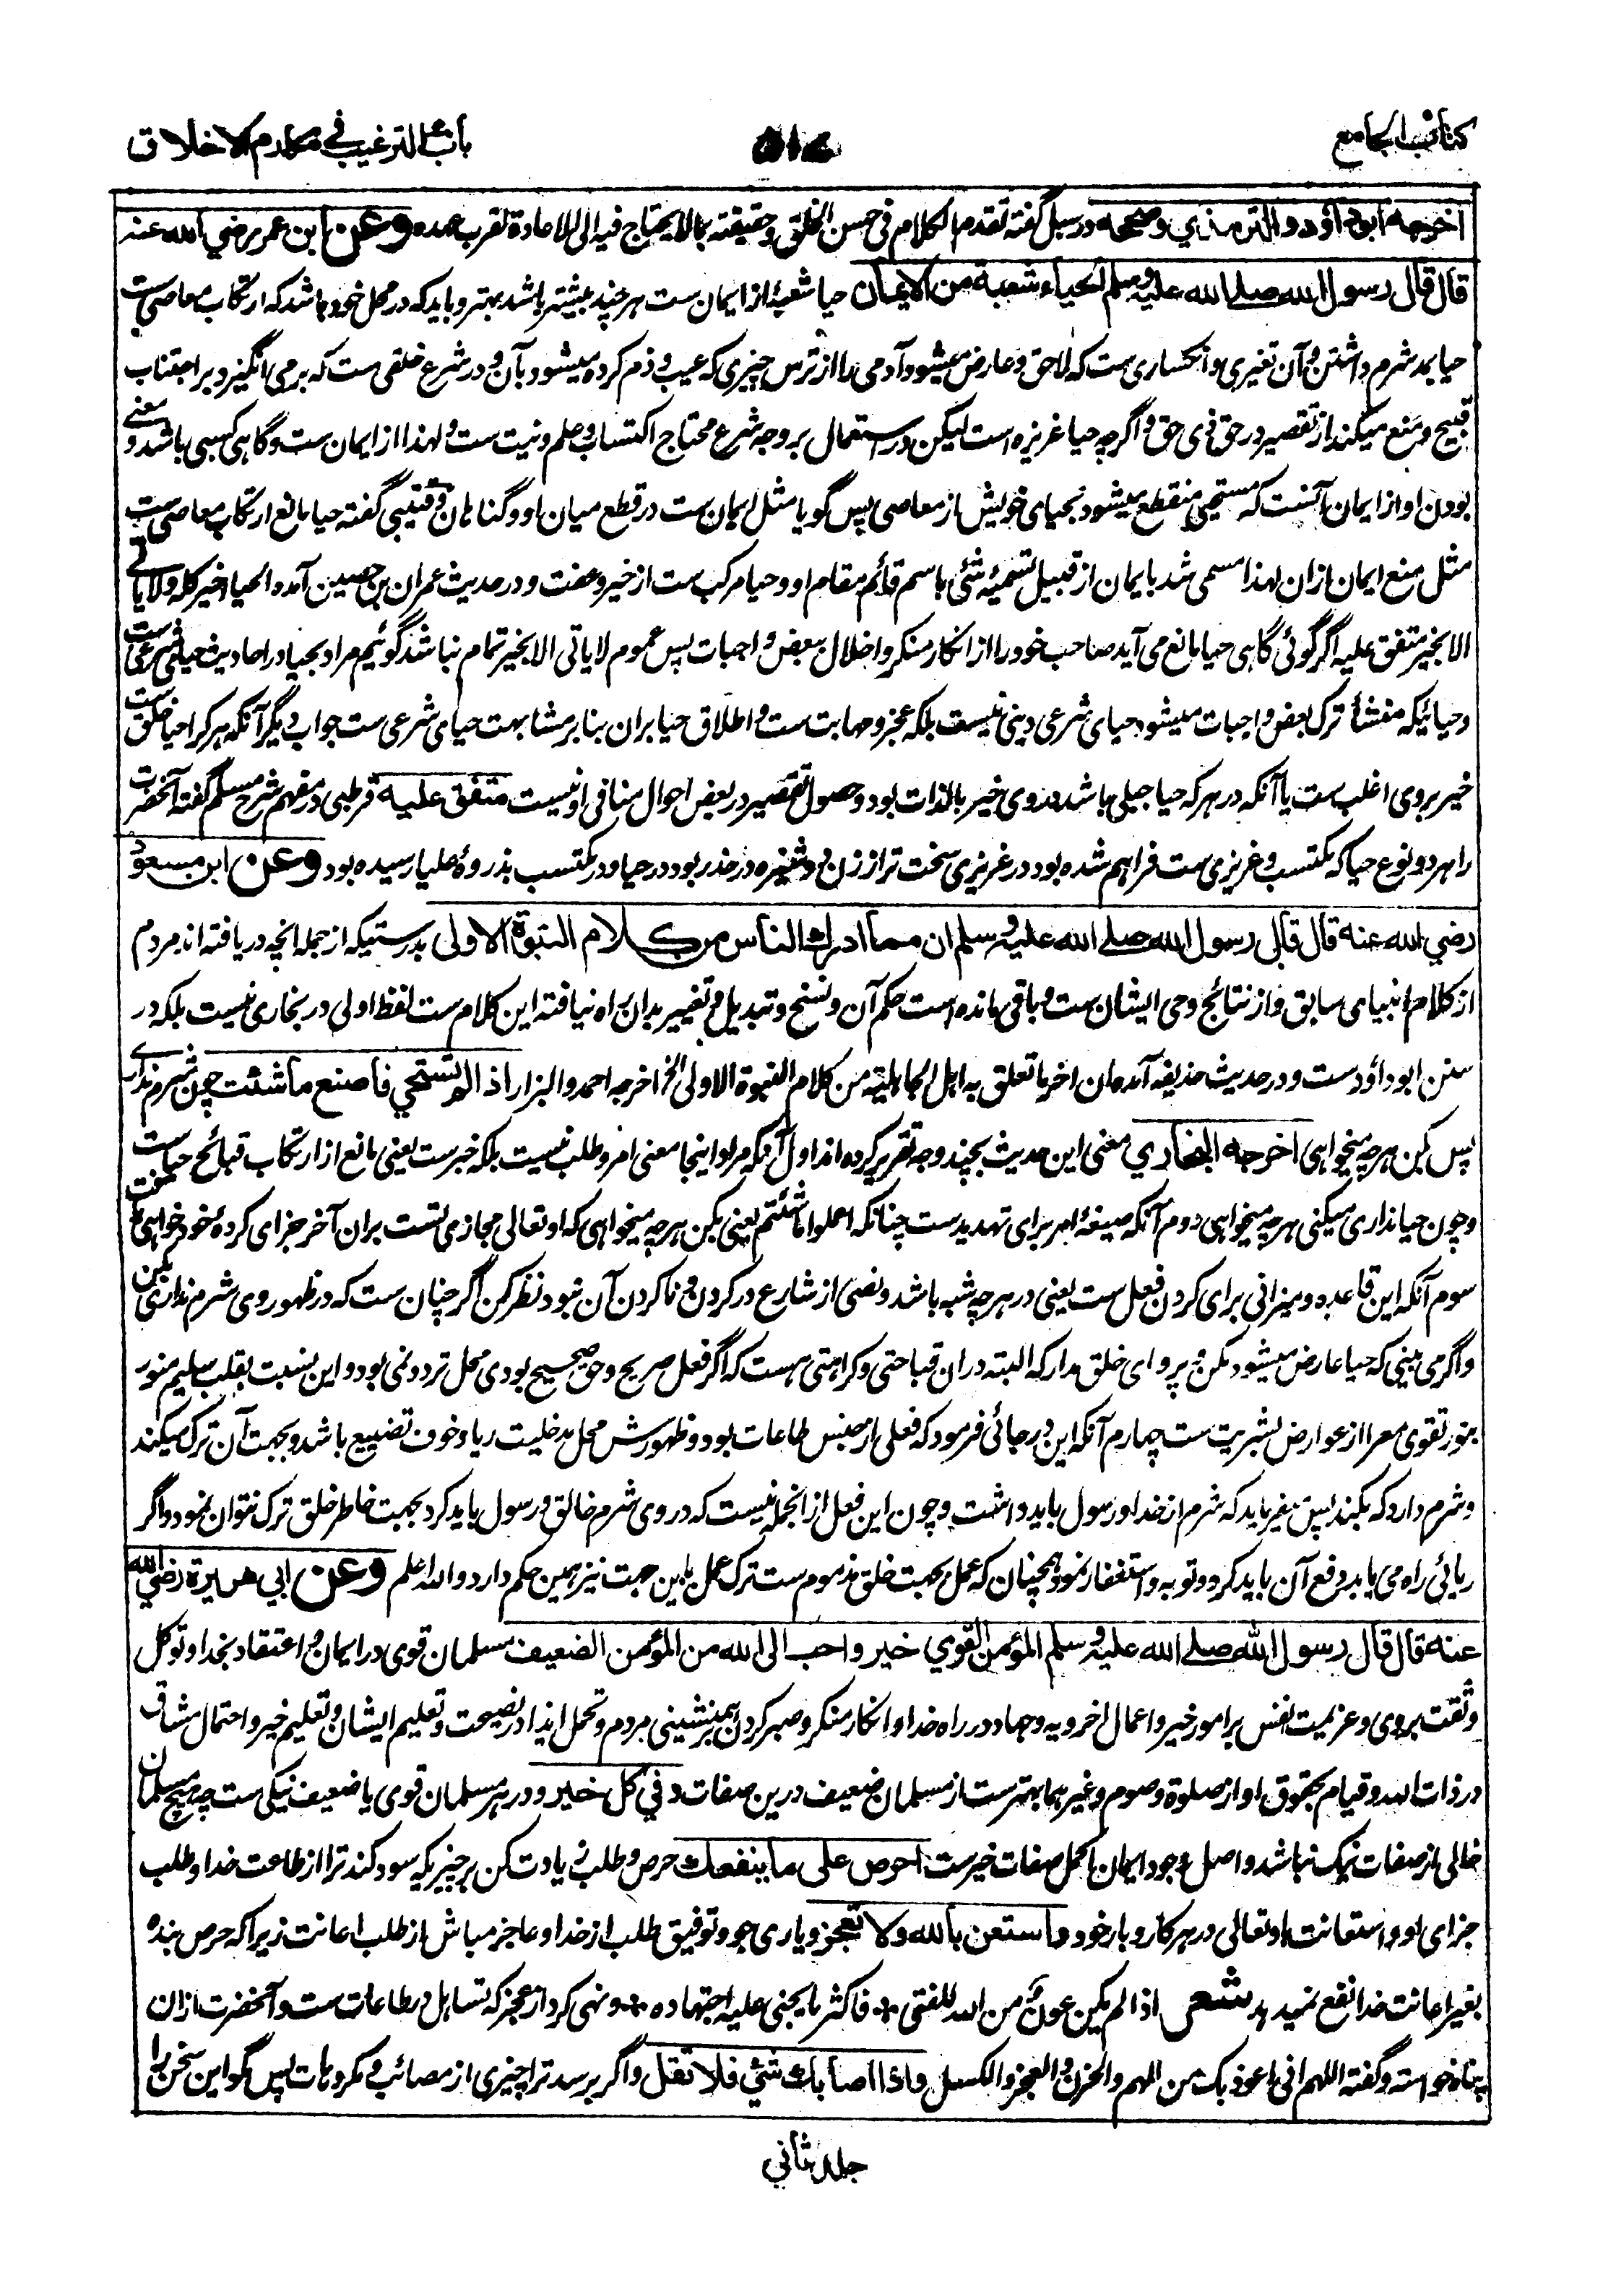 کتاب الجامع
باب الترغیب فی مکارم الاخلاق
اخرجه ابوداؤد والترمذي وصححه درسبل گفته تقدم الکلام فی حسن الخلق وحقیقته بمالا یحتاج فیه الی الاعادة لقرب عهده وعن ابن عمر رضي الله عنه
قال قال رسول الله صلے الله علیه وسلم الحیاء شعبة من الایمان حیا شعبۂ از ایمان ست هر چند بیشتر باشد بهتر و باید که در محل خود باشد که ارتکاب معاصی ست
حیا بمد شرم داشتن و آن تغیری و انکساری ست که لاحق و عارض میشود آدمی را از ترس چیزی که عیب و ذم کرده میشود بآن و در شرع خلقی ست که برمی انگیزد بر اجتناب
قبیح و منع میکند از تقصیر در حق ذی حق و اگرچه حیا غریزه است لیکن در استعمال بر وجه شرع محتاج اکتساب و علم و نیت ست و لهذا از ایمان ست و گاهی کسبی باشد و معنے
بودن او از ایمان آنست که مستحیی منقطع میشود بحیای خویش از معاصی پس گویا مثل ایمان ست در قطع میان او و گناهان و قتیبی گفته حیا مانع ارتکاب معاصی ست
مثل منع ایمان ازان لهذا مسمی شد بایمان از قبیل تسمیۂ شئی باسم قائم مقام او و حیا مرکب ست از خیر و عفت و در حدیث عمران بن حصین آمده الحیاء خیر کله ولا یاتے
الا بخیر متفق علیه اگر گوئی گاهی حیا مانع می آید صاحب خود را از انکار منکر و اخلال ببعض واجبات پس عموم لا یاتی الا بخیر تمام نباشد گوئیم مراد بحیا در احادیث حیای شرعی ست
و حیائیکه منشأ ترک بعض واجبات میشود حیای شرعی دینی نیست بلکه عجز و مهابت ست و اطلاق حیا بران بنابر مشابهت حیای شرعی ست جواب دیگر آنکه هر کرا حیا خلق ست
خیر بروی اغلب ست یا آنکه در هر که حیا جبلی باشد در وی خیر بالذات بود و حصول تقصیر در بعض احوال منافی او نیست متفق علیه قرطبی در مفهم شرح مسلم گفته آنحضرت
را هر دو نوع حیا که مکتسب و غریزی ست فراهم شده بود در غریزی سخت تر از زن دوشیزه در خدر بود در حیا و در مکتسب بذروۂ علیا رسیده بود وعن ابن مسعود
رضي الله عنه قال قال رسول الله صلے الله علیه وسلم ان مما ادرك الناس من کلام النبوة الاولی بدرستیکه از جمله انچه دریافته اند مردم
از کلام انبیای سابق و از نتائج وحی ایشان ست و باقی مانده است حکم آن و نسخ و تبدیل و تغییر بدان راه نیافته این کلام ست لفظ اولی در بخاری نیست بلکه در
سنن ابوداؤد ست و در حدیث حذیفه آمده ان اخر ما تعلق به اهل الجاهلیة من کلام النبوة الاولی الخ اخرجه احمد والبزار اذا لم تستحي فاصنع ما شئت چون شرم نداری
پس کن هرچه میخواهی اخرجه البخاري معنی این حدیث بچند وجه تقریر کرده اند اول آنکه مراد اینجا معنی امر و طلب نیست بلکه خبر ست یعنی مانع از ارتکاب قبائح حیاست
و چون حیا نداری میکنی هرچه میخواهی دوم آنکه صیغۂ امر برای تهدید ست چنانکه اعملوا ما شئتم یعنی بکن هرچه میخواهی که او تعالی مجازی تست بران آخر جزای کردۂ خود خواهی یافت
سوم آنکه این قاعده و میزانی برای کردن فعل ست یعنی در هرچه شبه باشد و نصی از شارع در کردن و ناکردن آن نبود نظر کن اگر چنان ست که در ظهور وی شرم نداری بکن
و اگر می بینی که حیا عارض میشود مکن و پروای خلق مدار که البته دران قباحتی و کراهتی هست که اگر فعل صریح و حق صحیح بودی محل تردد نمی بود و این بنسبت بقلب سلیم منور
بنور تقوی معرا از عوارض بشریت ست چهارم آنکه این در جائی فرمود که فعلی از جنس طاعات بود و ظهورش محل مدخلیت ریا و خوف تضییع باشد و بجهت آن ترک میکند
و شرم دارد که بکند پس میفرماید که شرم از خدا و رسول باید داشت و چون این فعل از انجمله نیست که در وی شرم خالق و رسول باید کرد بجهت خاطر خلق ترک نتوان نمود و اگر
ریائی راه می یابد رفع آن باید کرد و توبه و استغفار نمود همچنان که عمل بجهت خلق مذموم ست ترک عمل باین جهت نیز همین حکم دارد والله اعلم وعن ابي هريرة رضي الله
عنه قال قال رسول الله صلے الله علیه وسلم المؤمن القوي خیر واحب الی الله من المؤمن الضعیف مسلمان قوی در ایمان و اعتقاد بخدا و توکل
و ثقت بروی و عزیمت نفس بر امور خیر و اعمال اخرویه و جهاد در راه خدا و انکار منکر و صبر کردن بر همنشینی مردم و تحمل ایذا در نصیحت و تعلیم ایشان و تعلیم خیر و احتمال مشاق
در ذات الله و قیام بحقوق او از صلوة و صوم و غیرهما بهتر ست از مسلمان ضعیف درین صفات وفي کل خیر و در هر مسلمان قوی یا ضعیف نیکی ست چه هیچ مسلمان
خالی از صفات نیک نباشد و اصل وجود ایمان اکمل صفات خیر ست احرص علی ما ینفعك حرص و طلب زیادت کن بر چیزیکه سود کند ترا از طاعت خدا و طلب
جزای او و استعانت باو تعالی در هر کار و بار خود واستعن بالله ولا تعجز و یاری جو و توفیق طلب از خدا و عاجز مباش از طلب اعانت زیرا که حرص بنده
بغیر اعانت خدا نفع نمیدهد شعر اذا لم یکن عون من الله للفتی * فاکثر ما یجنی علیه اجتهاده * و نهی کرد از عجز که تساهل در طاعات ست و آنحضرت ازان
پناه خواسته و گفته اللهم انی اعوذ بک من الهم والحزن والعجز والکسل واذا اصابك شئ فلا تقل و اگر برسد ترا چیزی از مصائب و مکروهات پس مگو این سخن را
جلد ثاني